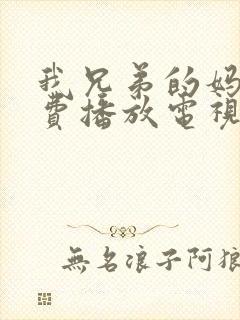 我兄弟的妈
費播放電視
無名浪子阿狼